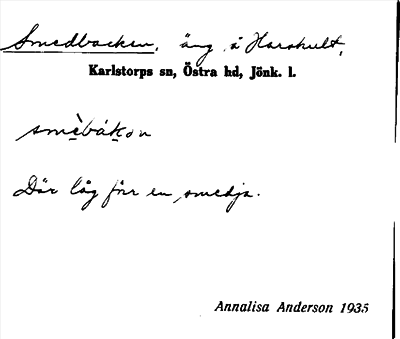 Smedbacken, äng å Harshult,
Karlstorps sn, Östra hd, Jönk. l.
smèbák̠ən
Där låg förr en smedja.
Annalisa Anderson 1935